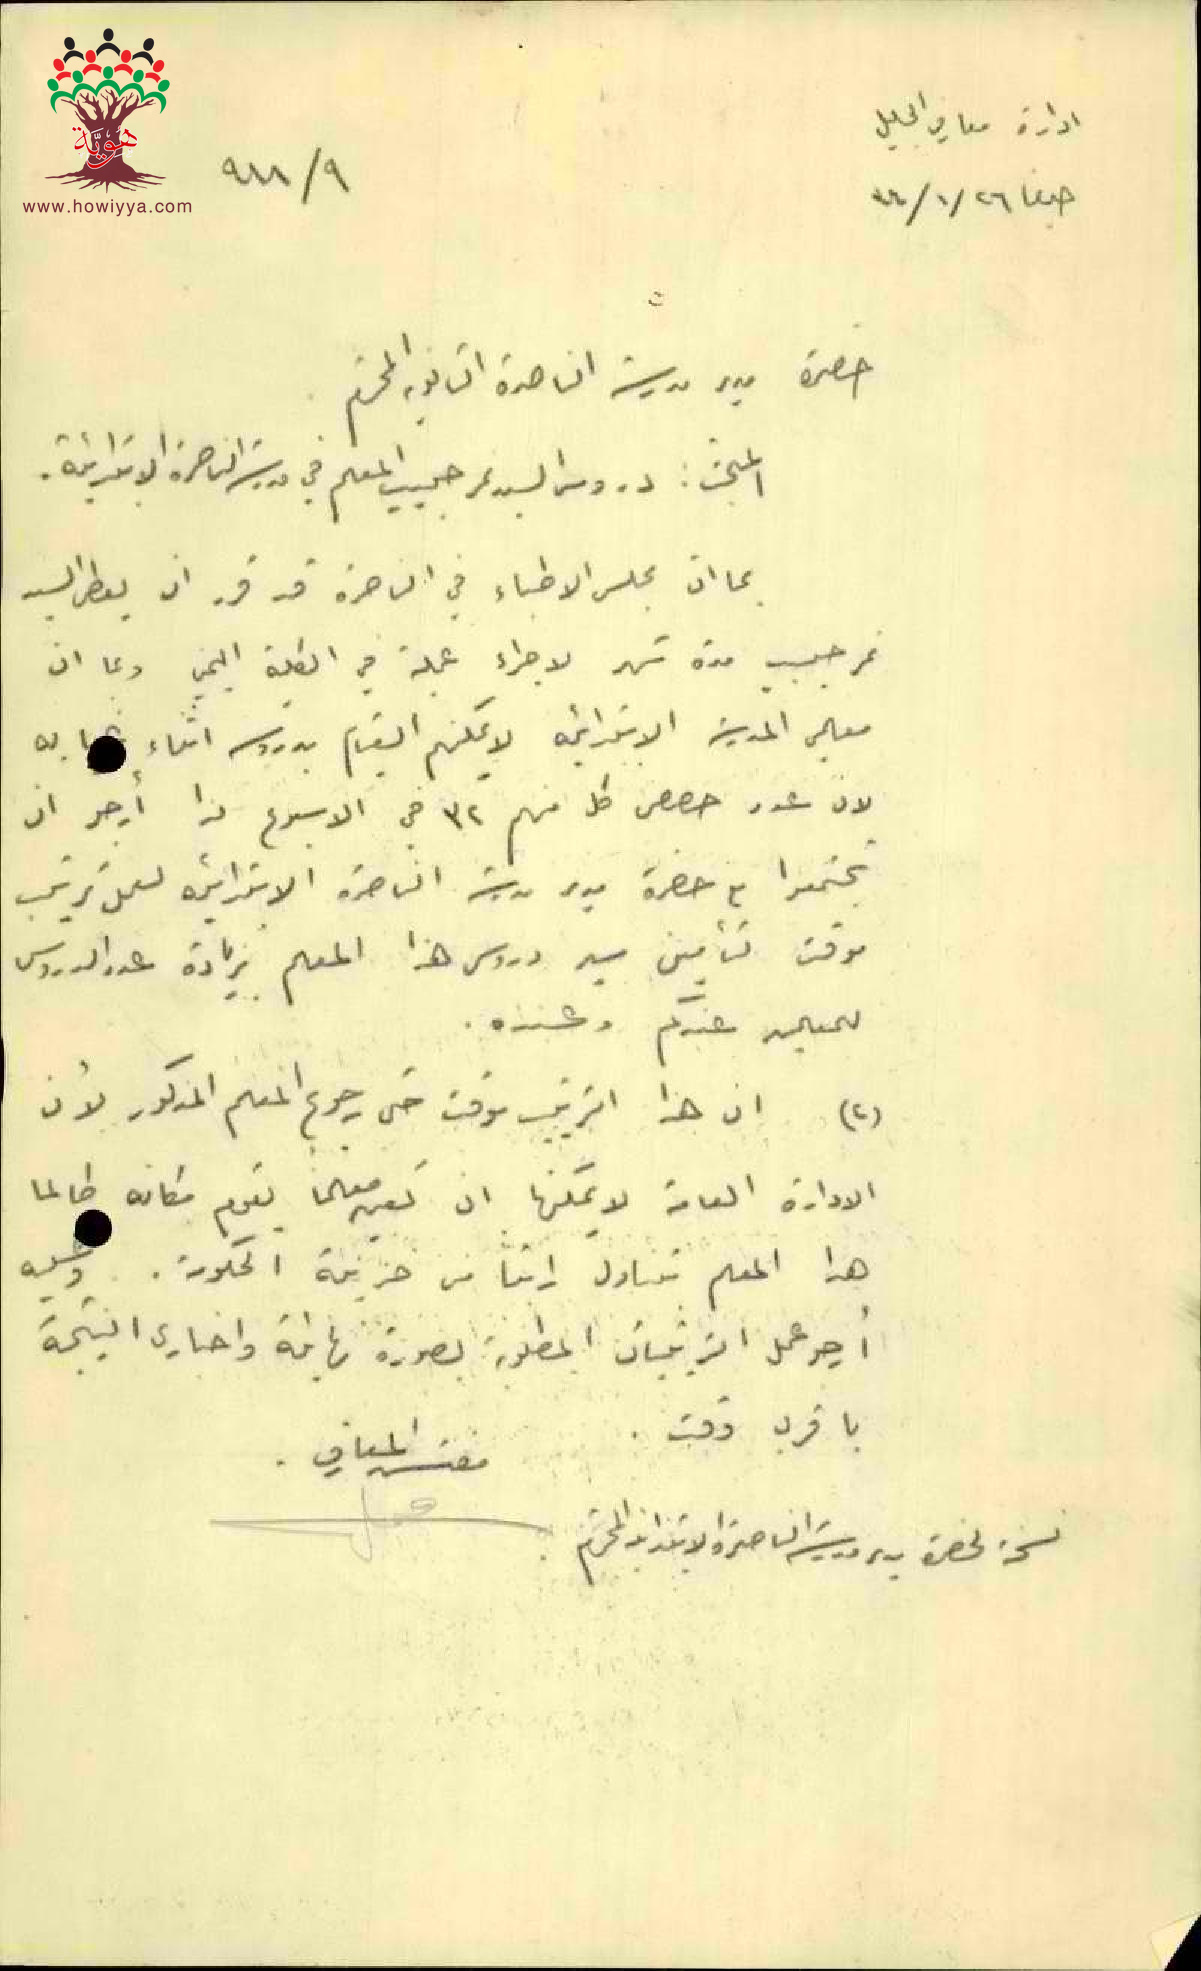 هويّة
www.howiyya.com
ادارة معارف الجليل
٩٨٨/٩
حيفا ٢٦/١/
حضرة مدير مدرسة الناصرة الثانوية المحترم
المبحث: دروس السيد نمر حبيب المعلم في مدرسة الناصرة الابتدائية.
بما ان مجلس الاطباء في الناصرة قد قرر ان يعطى السيد
نمر حبيب مدة شهر لاجراء عملية في الكلية اليمنى وبما ان
معلمي المدرسة الابتدائية لا يمكنهم القيام بدروسه اثناء غيابه
لان عدد حصص كل منهم ٣٢ في الاسبوع لذا أرجو ان
تجتمعوا مع حضرة مدير مدرسة الناصرة الابتدائية لعمل ترتيب
موقت لتأمين سير دروس هذا المعلم بزيادة عدد الدروس
للمعلمين عندكم وعنده.
(٢) ان هذا الترتيب موقت حتى رجوع المعلم المذكور لأن
الادارة العامة لا يمكنها ان تعين معلماً يقوم مكانه طالما
هذا المعلم يتناول راتباً من خزينة الحكومة. وعليه
أرجو عمل الترتيبات المطلوبة بصورة نهائية واخباري النتيجة
باقرب وقت.
مفتش المعارف.
نسخة لحضرة مدير مدرسة الناصرة الابتدائية المحترم